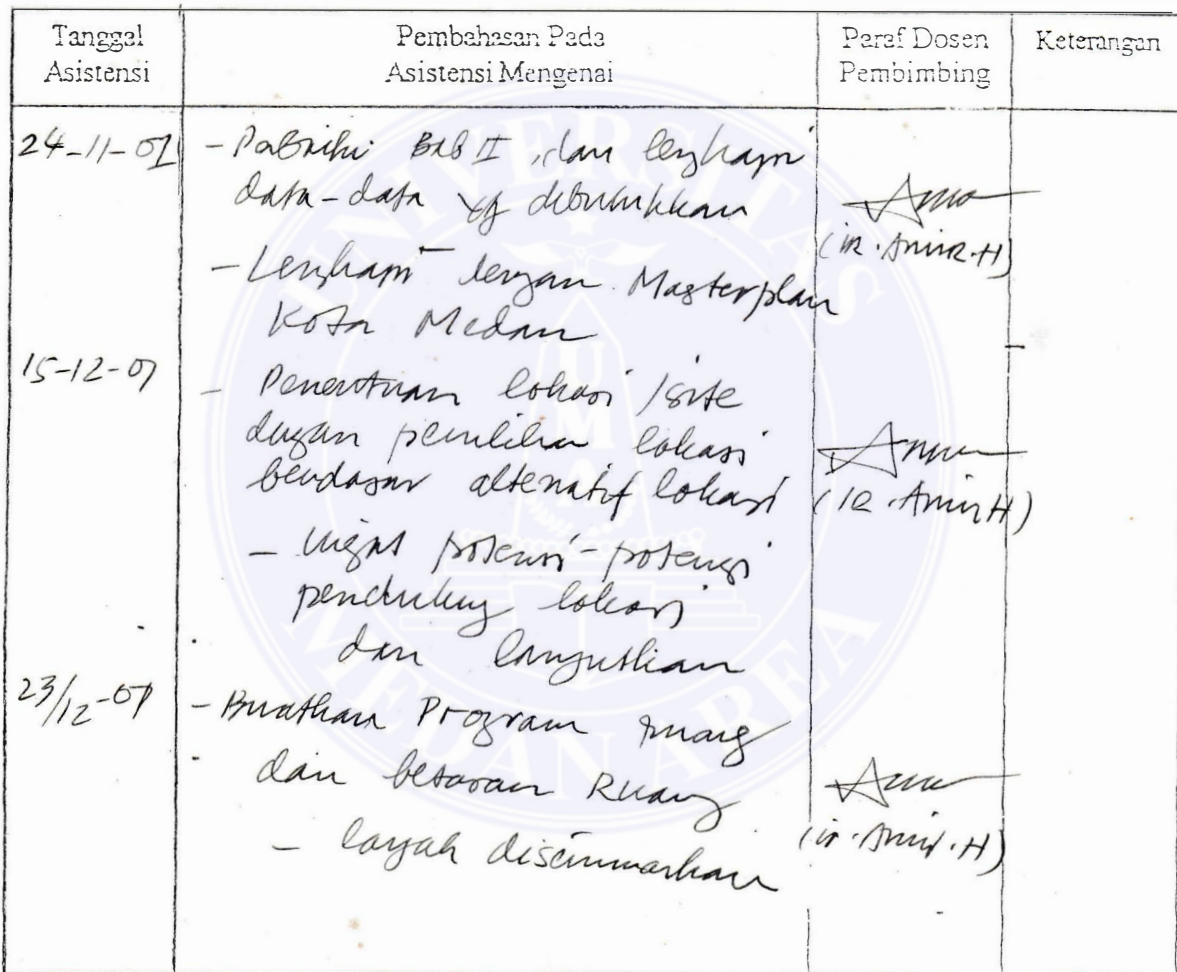 Tanggal Asistensi
Pembahasan Pada Asistensi Mengenai
Paraf Dosen Pembimbing
Keterangan
24-11-07
- Perbaiki BAB II, dan lengkapi
data-data yg dibutuhkan
(ir. Amir. H)
- Lengkapi dengan Masterplan
Kota Medan
15-12-07
- Penentuan lokasi / site
dengan pemilihan lokasi
berdasar alternatif lokasi
(IR. Amir H)
- ingat potensi-potensi
pendukung lokasi
dan lanjutkan
23/12-07
- Buatkan Program ruang
dan besaran Ruang
(ir. Amir. H)
- layak diseminarkan
UNIVERSITAS
UMA
MEDAN AREA